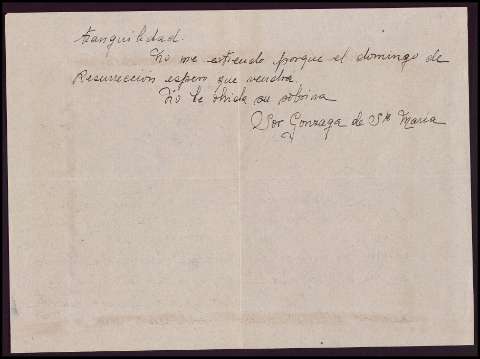 tranquilidad.
No me extiendo porque el domingo de
Resurrección espero que vendra
No le olvida su sobrina
Sor Gonzaga de Sta Maria